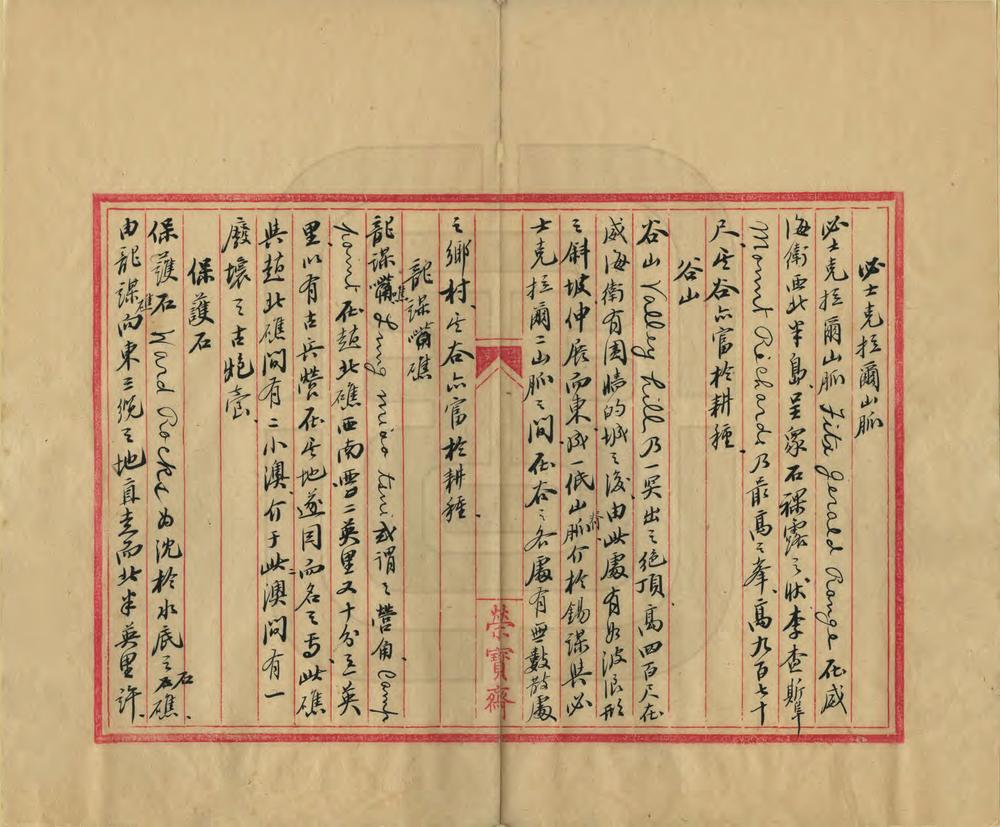 必士克拉爾山脈
必士克拉爾山脈 Fitz gerald Range 在威
海衛西北半島、呈眾石裸露之狀李查斯峯
Mount Richards 乃最高之峯、高九百七十
尺、其谷亦富於耕種、
谷山
谷山 Valley hill 乃一突出之絕頂、高四百尺在
威海衛有圍墻的城之後、由此處有如波浪形
之斜坡伸展而東、成一低山脈、介於錫謀與必
士克拉爾二山脈之間、在谷之各處有無數散處
之鄉村、其谷亦富於耕種、
龍謀嘴礁
龍謀嘴礁 Lung miao tsui 或謂之營角、Camp
point 在趙北礁西南西二英里又十分三英
里以有古兵營在其地遂因而名之焉、此礁
與趙北礁間有二小澳、介于此二澳間有一
廢壞之古炮臺、
保護石
保護石 Ward Rocks 為沈於水底之石礁、
由龍謀礁向東三纜之地直走而北半英里許、
榮寶齋